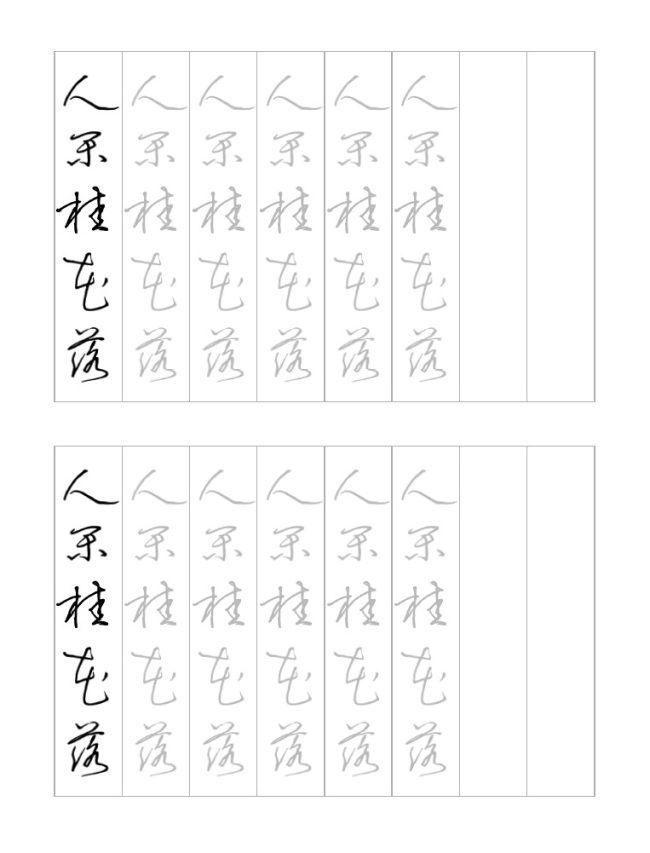 人闲桂花落
人闲桂花落
人闲桂花落
人闲桂花落
人闲桂花落
人闲桂花落
人闲桂花落
人闲桂花落
人闲桂花落
人闲桂花落
人闲桂花落
人闲桂花落